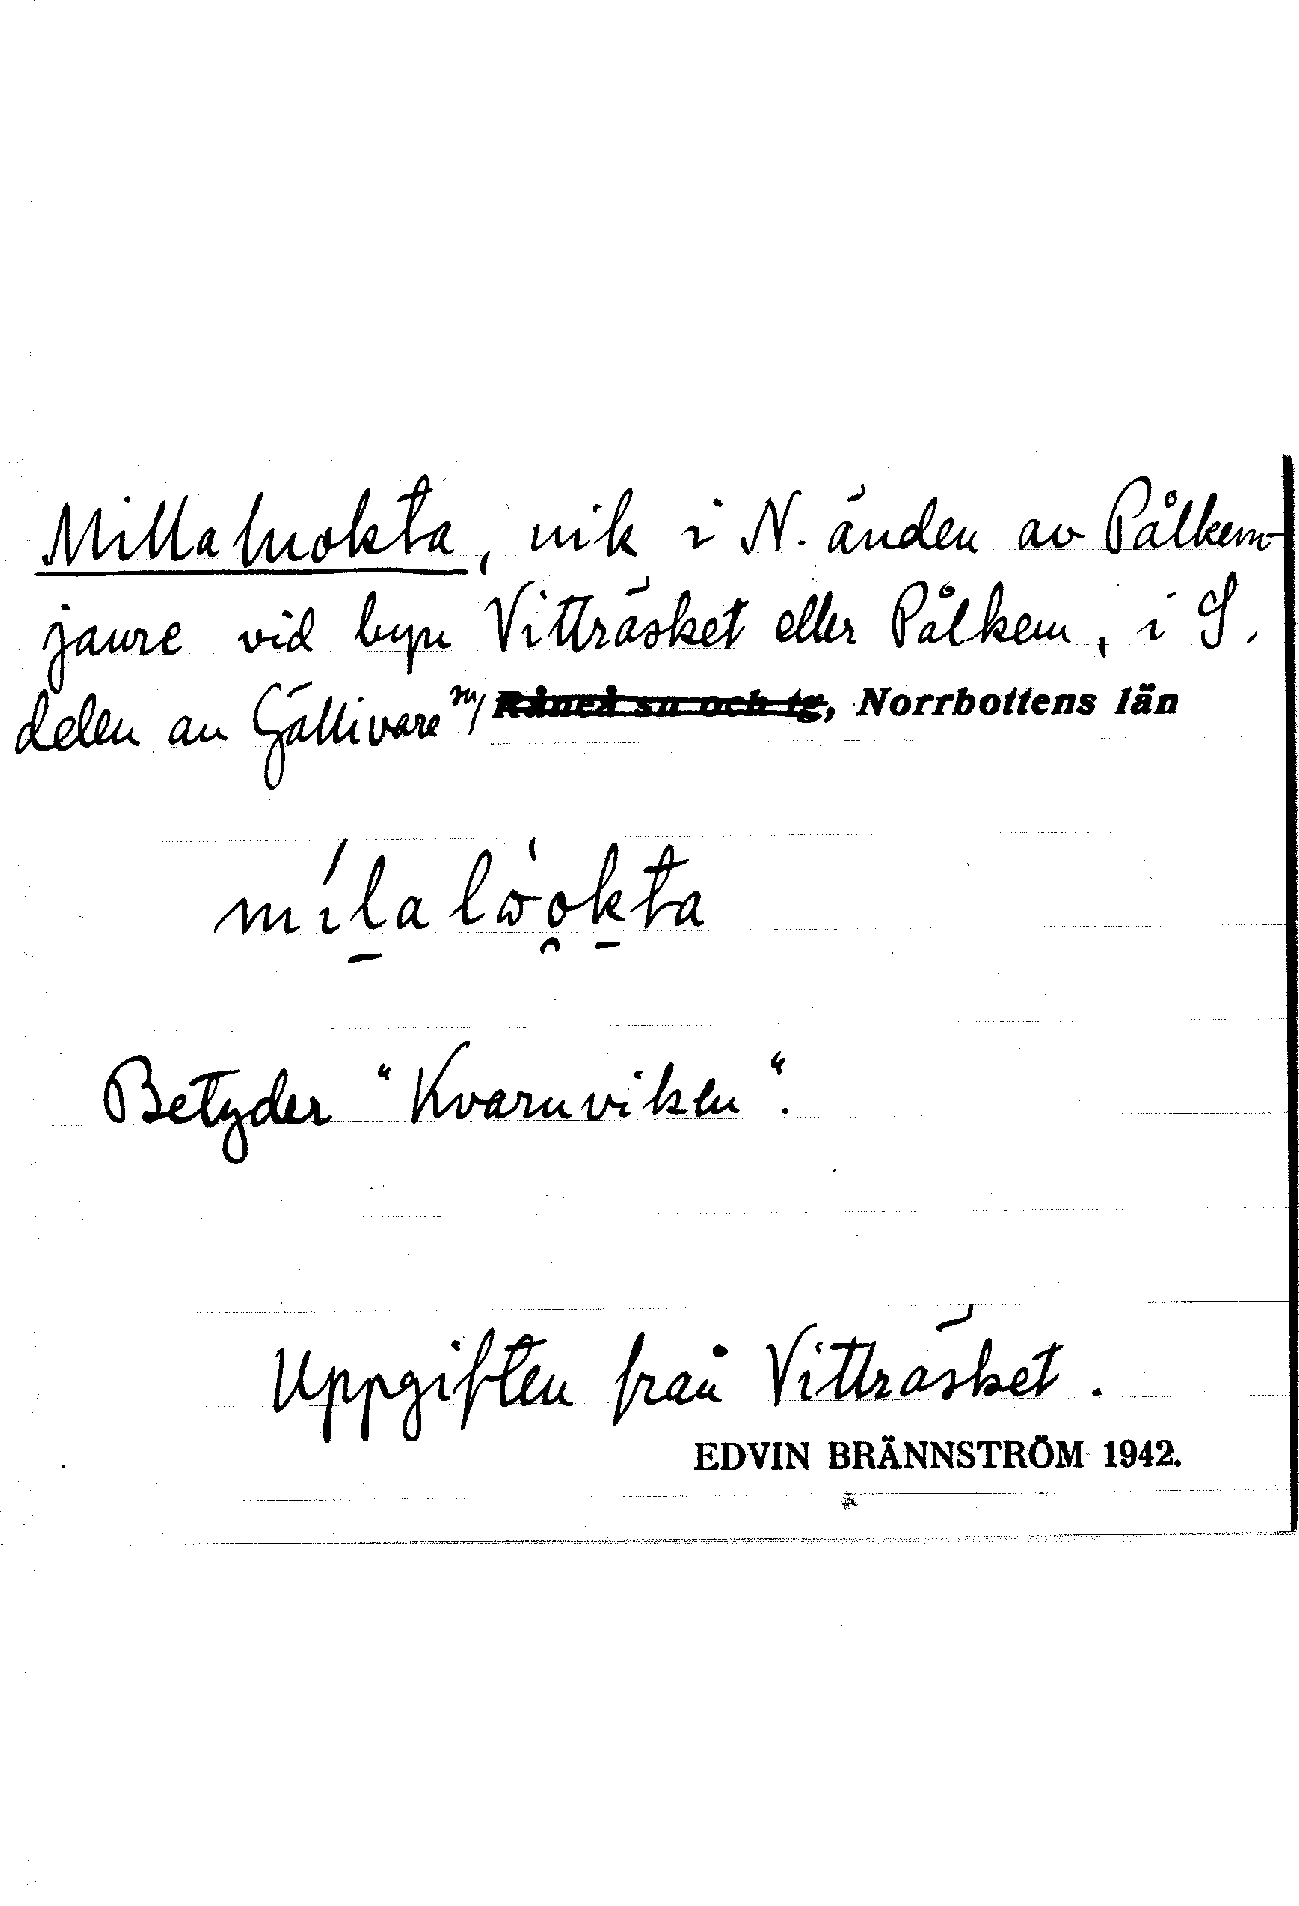 Millaluokta, vik i N. änden av Pålkem-
jaure vid byn Vitträsket eller Pålkem, i S.
delen av Gällivare sn/ Råneå sn och tg, Norrbottens län
mílalòokta
Betyder "Kvarnviken".
Uppgiften från Vitträsket.
EDVIN BRÄNNSTRÖM 1942.